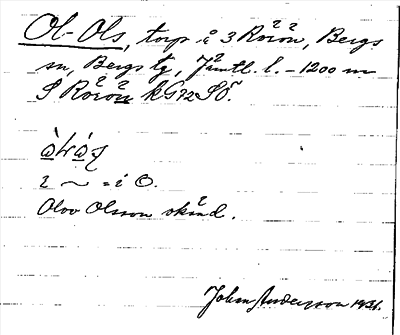 Ol-Ols, torp å 3 Rörön, Bergs
sn, Bergs tg, Jämtl. l. – 1200 m
S Rörön kG72SÖ.
i ~ = i Ö.
Olov Olsson skind.
John Andersson 1931.